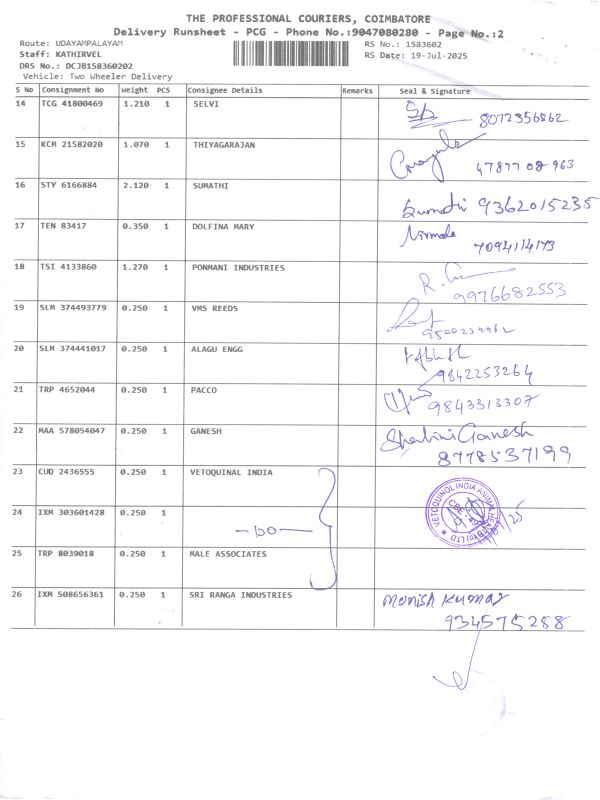 THE PROFESSIONAL COURIERS, COIMBATORE
Delivery Runsheet - PCG - Phone No.:9047080280 - Page No.:2
Route: UDAYAMPALAYAM RS No.: 1583602
Staff: KATHIRVEL RS Date: 19-Jul-2025
DRS No.: DCJB158360202
Vehicle: Two Wheeler Delivery
S No Consignment No Weight PCS Consignee Details Remarks Seal & Signature
14 TCG 41800469 1.210 1 SELVI
8072356862
15 KCM 21582020 1.070 1 THIYAGARAJAN
47877 08 963
16 STY 6166884 2.120 1 SUMATHI
Sumathi 9362015235
17 TEN 83417 0.350 1 DOLFINA MARY Nirmala
7094114173
18 TSI 4133860 1.270 1 PONMANI INDUSTRIES
9976682553
19 SLM 374493779 0.250 1 VMS REEDS
20 SLM 374441017 0.250 1 ALAGU ENGG
9842253264
21 TRP 4652044 0.250 1 PACCO
9843313307
22 MAA 578054047 0.250 1 GANESH Shalini Ganesh
8778537199
23 CUD 2436555 0.250 1 VETOQUINAL INDIA
VETOQUINOL INDIA ANIMAL HEALTH (P) LTD
CBE
24 IXM 303601428 0.250 1
-DO-
25 TRP 8039018 0.250 1 MALE ASSOCIATES
26 IXM 508656361 0.250 1 SRI RANGA INDUSTRIES Monish Kumar
934575288